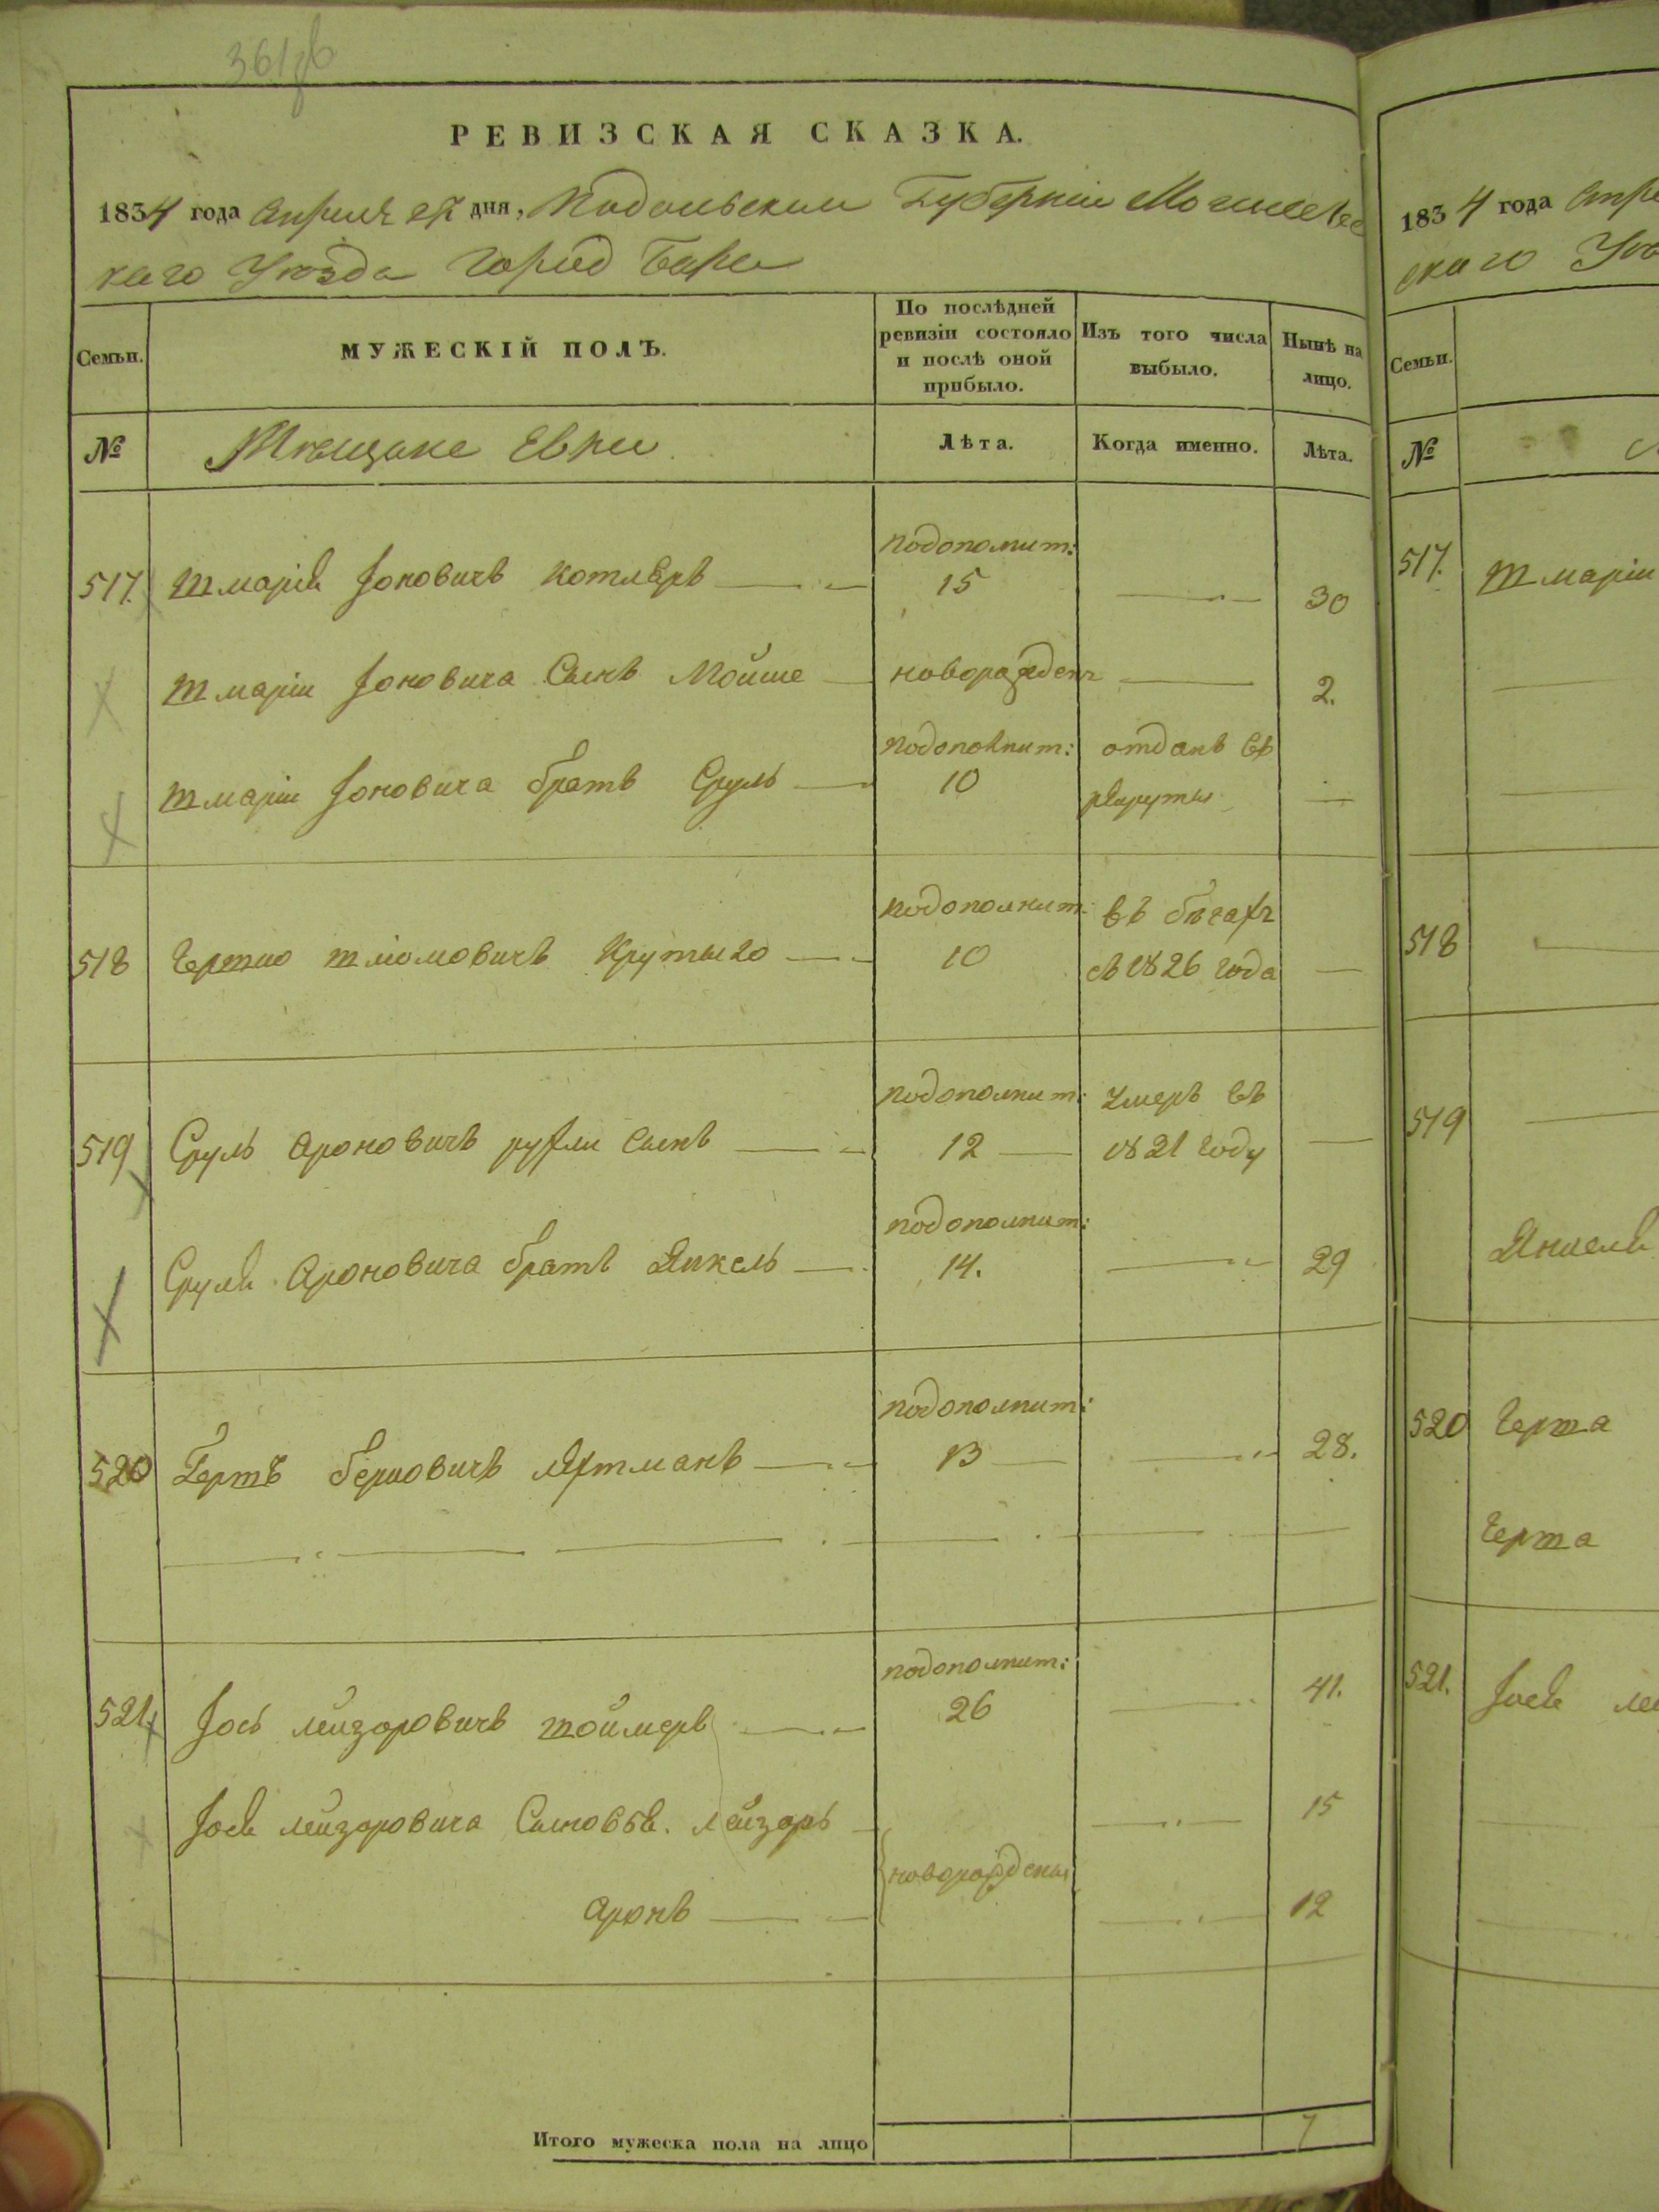 361
РЕВИЗСКАЯ СКАЗКА.
1834 года Апреля дня, Подольской Губерніи Могилевс
каго Уѣзда город Бара
Семьи.
МУЖЕСКІЙ ПОЛЪ.
По послѣдней ревизіи состояло и послѣ оной прибыло.
Изъ того числа выбыло.
Нынѣ на лицо.
№
Мѣщане Евреи
Лѣта.
Когда именно.
Лѣта.
подополнит:
517. Шмарій Іоновичъ Котляръ 15 30
Шмарія Іоновича Сынъ Мойше новорожден 2.
подополнит: отданъ въ
Шмарія Іоновича братъ Сруль 10 рекруты
подополнит: въ бѣгахъ
518 10 съ 1826 года
подополнит: умеръ въ
519 Сруль Ароновичъ сынъ 12 1821 году
подополнит:
Сруля Ароновича братъ Янкель 14. 29
подополнит:
520 Гершъ Берковичъ 13 28.
подополнит:
521. Іось Лейзоровичъ 26 41.
Іося Лейзоровича Сыновья. Лейзоръ 15
новорождены
Аронъ 12
Итого мужеска пола на лицо 7
1834 года Апре
скаго Уѣ
Семьи.
№
517. Шмарія
518
519
Янкеля
520 Герша
Герша
521. Іося Ле